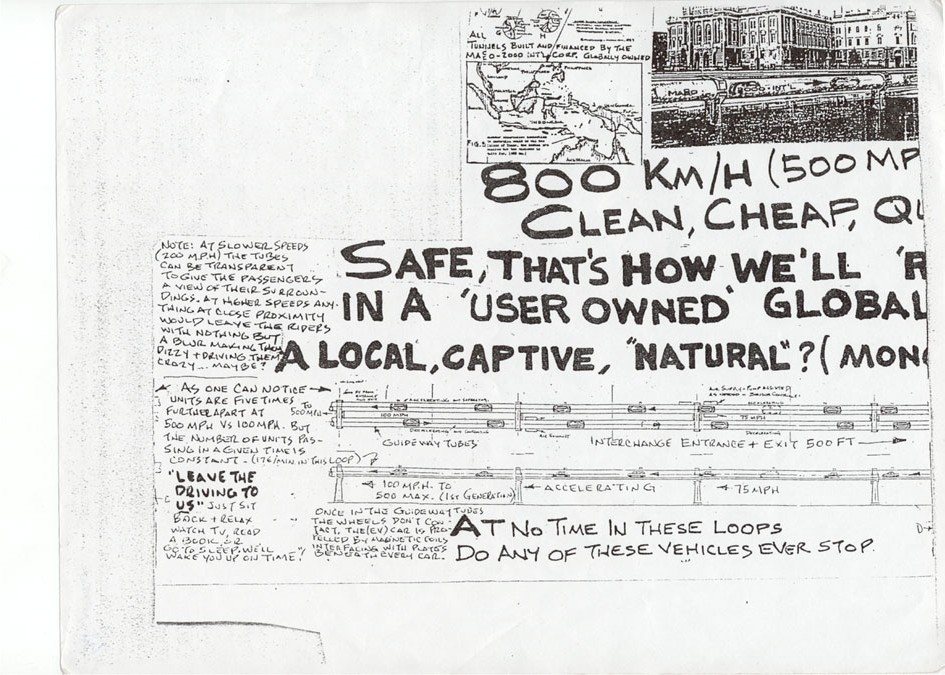 ALL
TUNNELS BUILT AND FINANCED BY THE
MAEO-2000 INT'L CORP. GLOBALLY OWNED
PHILIPPINES
AUSTRALIA
FIG.5
MAEO INT'L
800 KM/H (500 MP
CLEAN, CHEAP, QU
SAFE, THAT'S HOW WE'LL 'R
IN A 'USER OWNED' GLOBAL
A LOCAL, CAPTIVE, "NATURAL"? (MONO
NOTE: AT SLOWER SPEEDS
(200 M.P.H) THE TUBES
CAN BE TRANSPARENT
TO GIVE THE PASSENGERS
A VIEW OF THEIR SURROUN-
DINGS. AT HIGHER SPEEDS ANY-
THING AT CLOSE PROXIMITY
WOULD LEAVE THE RIDERS
WITH NOTHING BUT
A BLUR MAKING THEM
DIZZY + DRIVING THEM
CRAZY... MAYBE?
AS ONE CAN NOTICE
UNITS ARE FIVE TIMES
FURTHER APART AT
500 MPH VS 100MPH. BUT
THE NUMBER OF UNITS PAS-
SING IN A GIVEN TIME IS
CONSTANT. (176/MIN. IN THIS LOOP)
TO
500MPH
100 MPH
75 MPH
ACCELERATING
DECELERATING
GUIDEWAY TUBES
INTERCHANGE ENTRANCE + EXIT 500 FT
100 M.P.H. TO
500 MAX. (1ST GENERATION)
ACCELERATING
75 MPH
"LEAVE THE
DRIVING TO
US" JUST SIT
BACK + RELAX
WATCH TV, READ
A BOOK, OR
GO TO SLEEP. WE'LL
WAKE YOU UP ON TIME!
ONCE IN THE GUIDEWAY TUBES
THE WHEELS DON'T CON-
TACT, THE (EV) CAR IS PRO-
PELLED BY MAGNETIC COILS
INTERFACING WITH PLATES
BENEATH EVERY CAR.
AT NO TIME IN THESE LOOPS
DO ANY OF THESE VEHICLES EVER STOP.